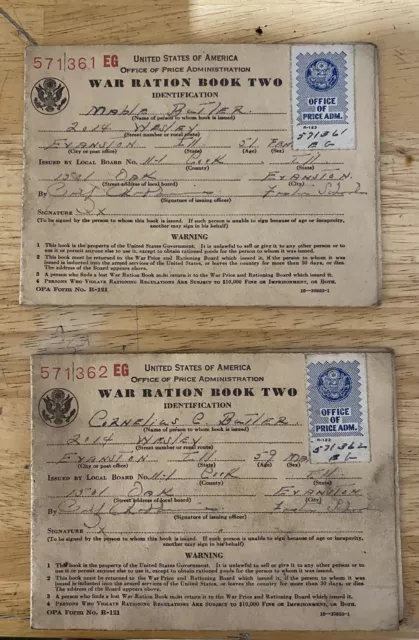 571361 EG
UNITED STATES OF AMERICA
OFFICE OF PRICE ADMINISTRATION
WAR RATION BOOK TWO
IDENTIFICATION
OFFICE
OF
PRICE ADM.
R-123
571361
EG
Mable Butler
(Name of person to whom book is issued)
2014 Wesley
(Street number or rural route)
Evanston Ill 51
(City or post office) (State) (Age) (Sex)
ISSUED BY LOCAL BOARD NO. 11-1 Cook Ill
(County) (State)
1501 Oak Evanston
(Street address of local board) (City)
By
(Signature of issuing officer)
SIGNATURE X
(To be signed by the person to whom this book is issued. If such person is unable to sign because of age or incapacity, another may sign in his behalf)
WARNING
1 This book is the property of the United States Government. It is unlawful to sell or give it to any other person or to use it or permit anyone else to use it, except to obtain rationed goods for the person to whom it was issued.
2 This book must be returned to the War Price and Rationing Board which issued it, if the person to whom it was issued is inducted into the armed services of the United States, or leaves the country for more than 30 days, or dies. The address of the Board appears above.
3 A person who finds a lost War Ration Book must return it to the War Price and Rationing Board which issued it.
4 PERSONS WHO VIOLATE RATIONING REGULATIONS ARE SUBJECT TO $10,000 FINE OR IMPRISONMENT, OR BOTH.
OPA FORM NO. R-121
571362 EG
UNITED STATES OF AMERICA
OFFICE OF PRICE ADMINISTRATION
WAR RATION BOOK TWO
IDENTIFICATION
OFFICE
OF
PRICE ADM.
R-123
571362
EG
Cornelius C. Butler
(Name of person to whom book is issued)
2014 Wesley
(Street number or rural route)
Evanston Ill 59
(City or post office) (State) (Age) (Sex)
ISSUED BY LOCAL BOARD NO. 11-1 Cook Ill
(County) (State)
1501 Oak Evanston
(Street address of local board) (City)
By
(Signature of issuing officer)
SIGNATURE X
(To be signed by the person to whom this book is issued. If such person is unable to sign because of age or incapacity, another may sign in his behalf)
WARNING
1 This book is the property of the United States Government. It is unlawful to sell or give it to any other person or to use it or permit anyone else to use it, except to obtain rationed goods for the person to whom it was issued.
2 This book must be returned to the War Price and Rationing Board which issued it, if the person to whom it was issued is inducted into the armed services of the United States, or leaves the country for more than 30 days, or dies. The address of the Board appears above.
3 A person who finds a lost War Ration Book must return it to the War Price and Rationing Board which issued it.
4 PERSONS WHO VIOLATE RATIONING REGULATIONS ARE SUBJECT TO $10,000 FINE OR IMPRISONMENT, OR BOTH.
OPA FORM NO. R-121